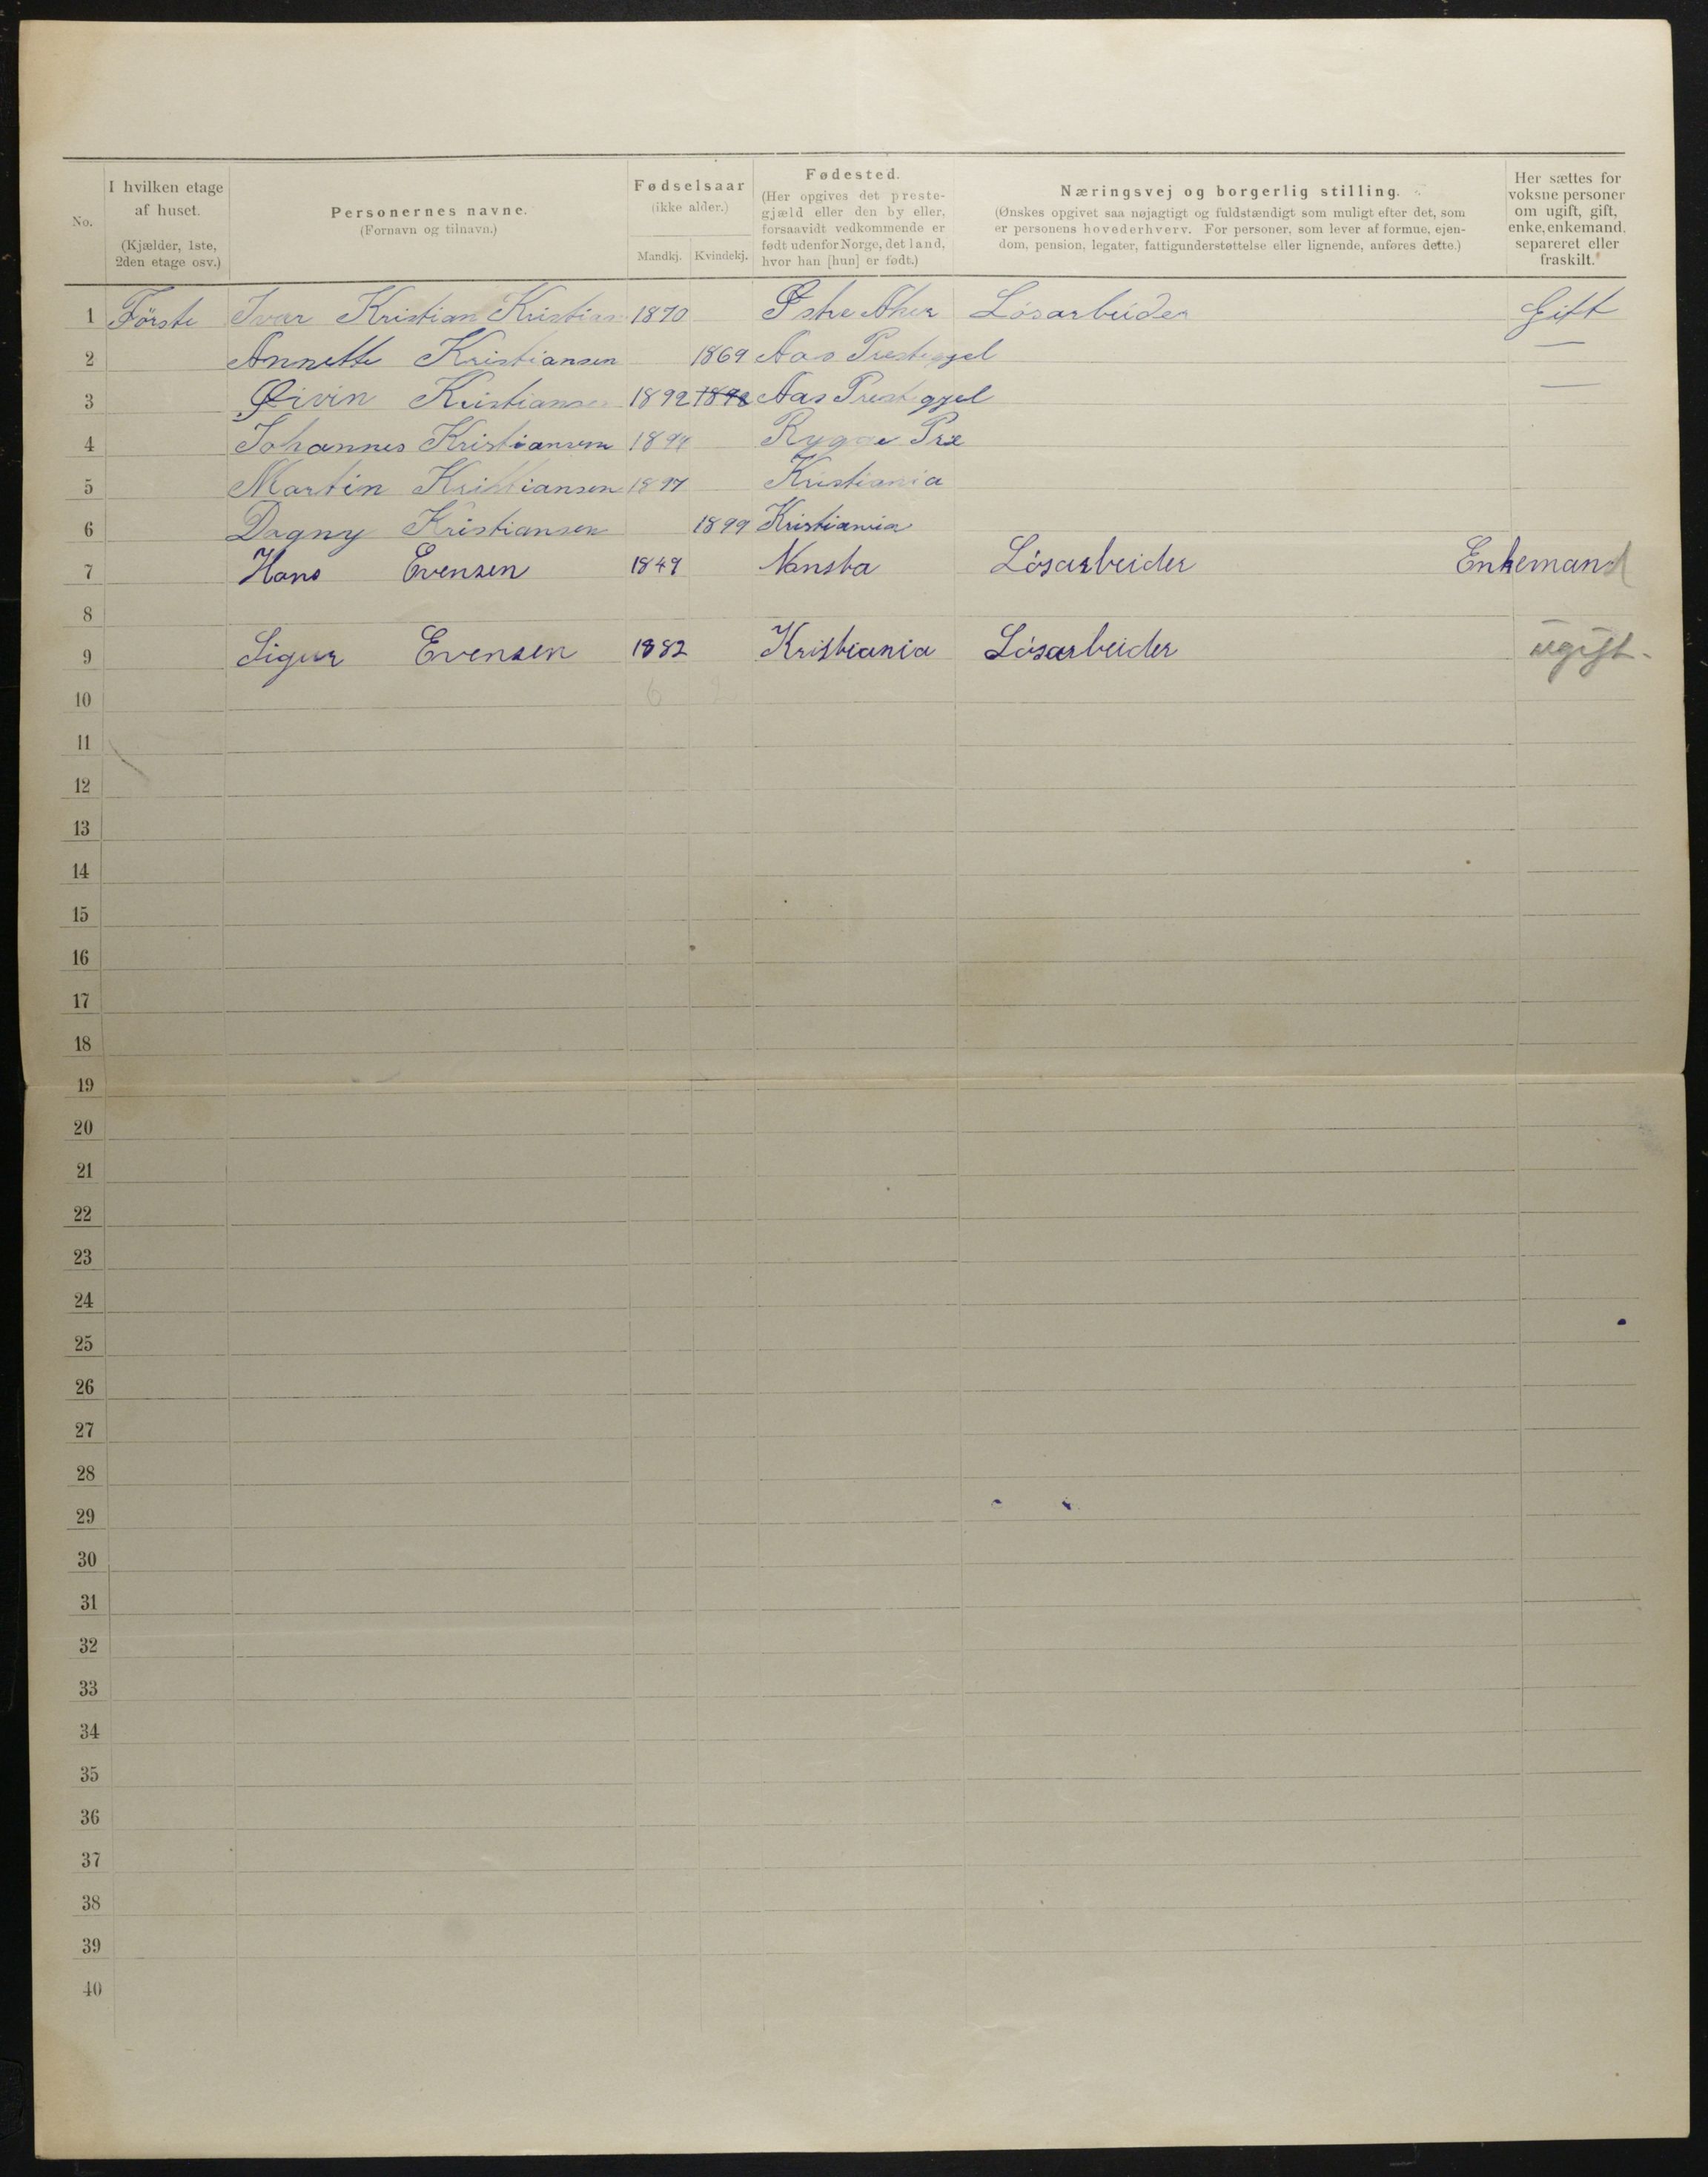 No.
I hvilken etage af huset. (Kjælder, 1ste, 2den etage osv.)
Personernes navne. (Fornavn og tilnavn.)
Fødselsaar (ikke alder.) Mandkj. Kvindekj.
Fødested. (Her opgives det prestegjæld eller den by eller, forsaavidt vedkommende er født udenfor Norge, det land, hvor han [hun] er født.)
Næringsvej og borgerlig stilling. (Ønskes opgivet saa nøjagtigt og fuldstændigt som muligt efter det, som er personens hovederhverv. For personer, som lever af formue, ejendom, pension, legater, fattigunderstøttelse eller lignende, anføres dette.)
Her sættes for voksne personer om ugift, gift, enke, enkemand, separeret eller fraskilt.
1 Förste Ivar Kristian Kristian 1870 Østre Aker Løsarbeider Gift
2 Annette Kristiansen 1869 Aas Prestegjel —
3 Øivin Kristiansen 1892 Aas Prestegjel —
4 Johannes Kristiansen Rygge Pre
5 Martin Kristiansen 1897 Kristiania
6 Dagny Kristiansen 1899 Kristiania
7 Hans Evensen 1849 Løsarbeider Enkemand
8
9 Sigur Evensen 1882 Kristiania Løsarbeider ugift.
10 6 2
11
12
13
14
15
16
17
18
19
20
21
22
23
24
25
26
27
28
29
30
31
32
33
34
35
36
37
38
39
40